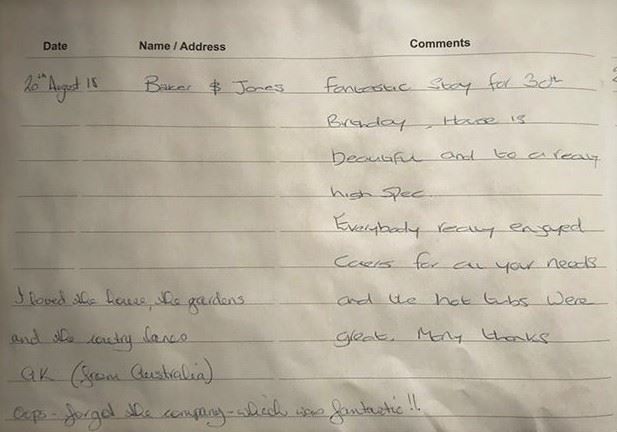 Date Name / Address Comments
20th August 18 Baker & Jones Fantastic stay for 30th
Birthday, House is
beautiful and to a really
high spec.
Everybody really enjoyed
Caters for all your needs
I loved the house, the gardens and the hot tubs were
and the country lanes great. Many thanks
GK (from Australia)
Oops - forgot the company - which was fantastic!!